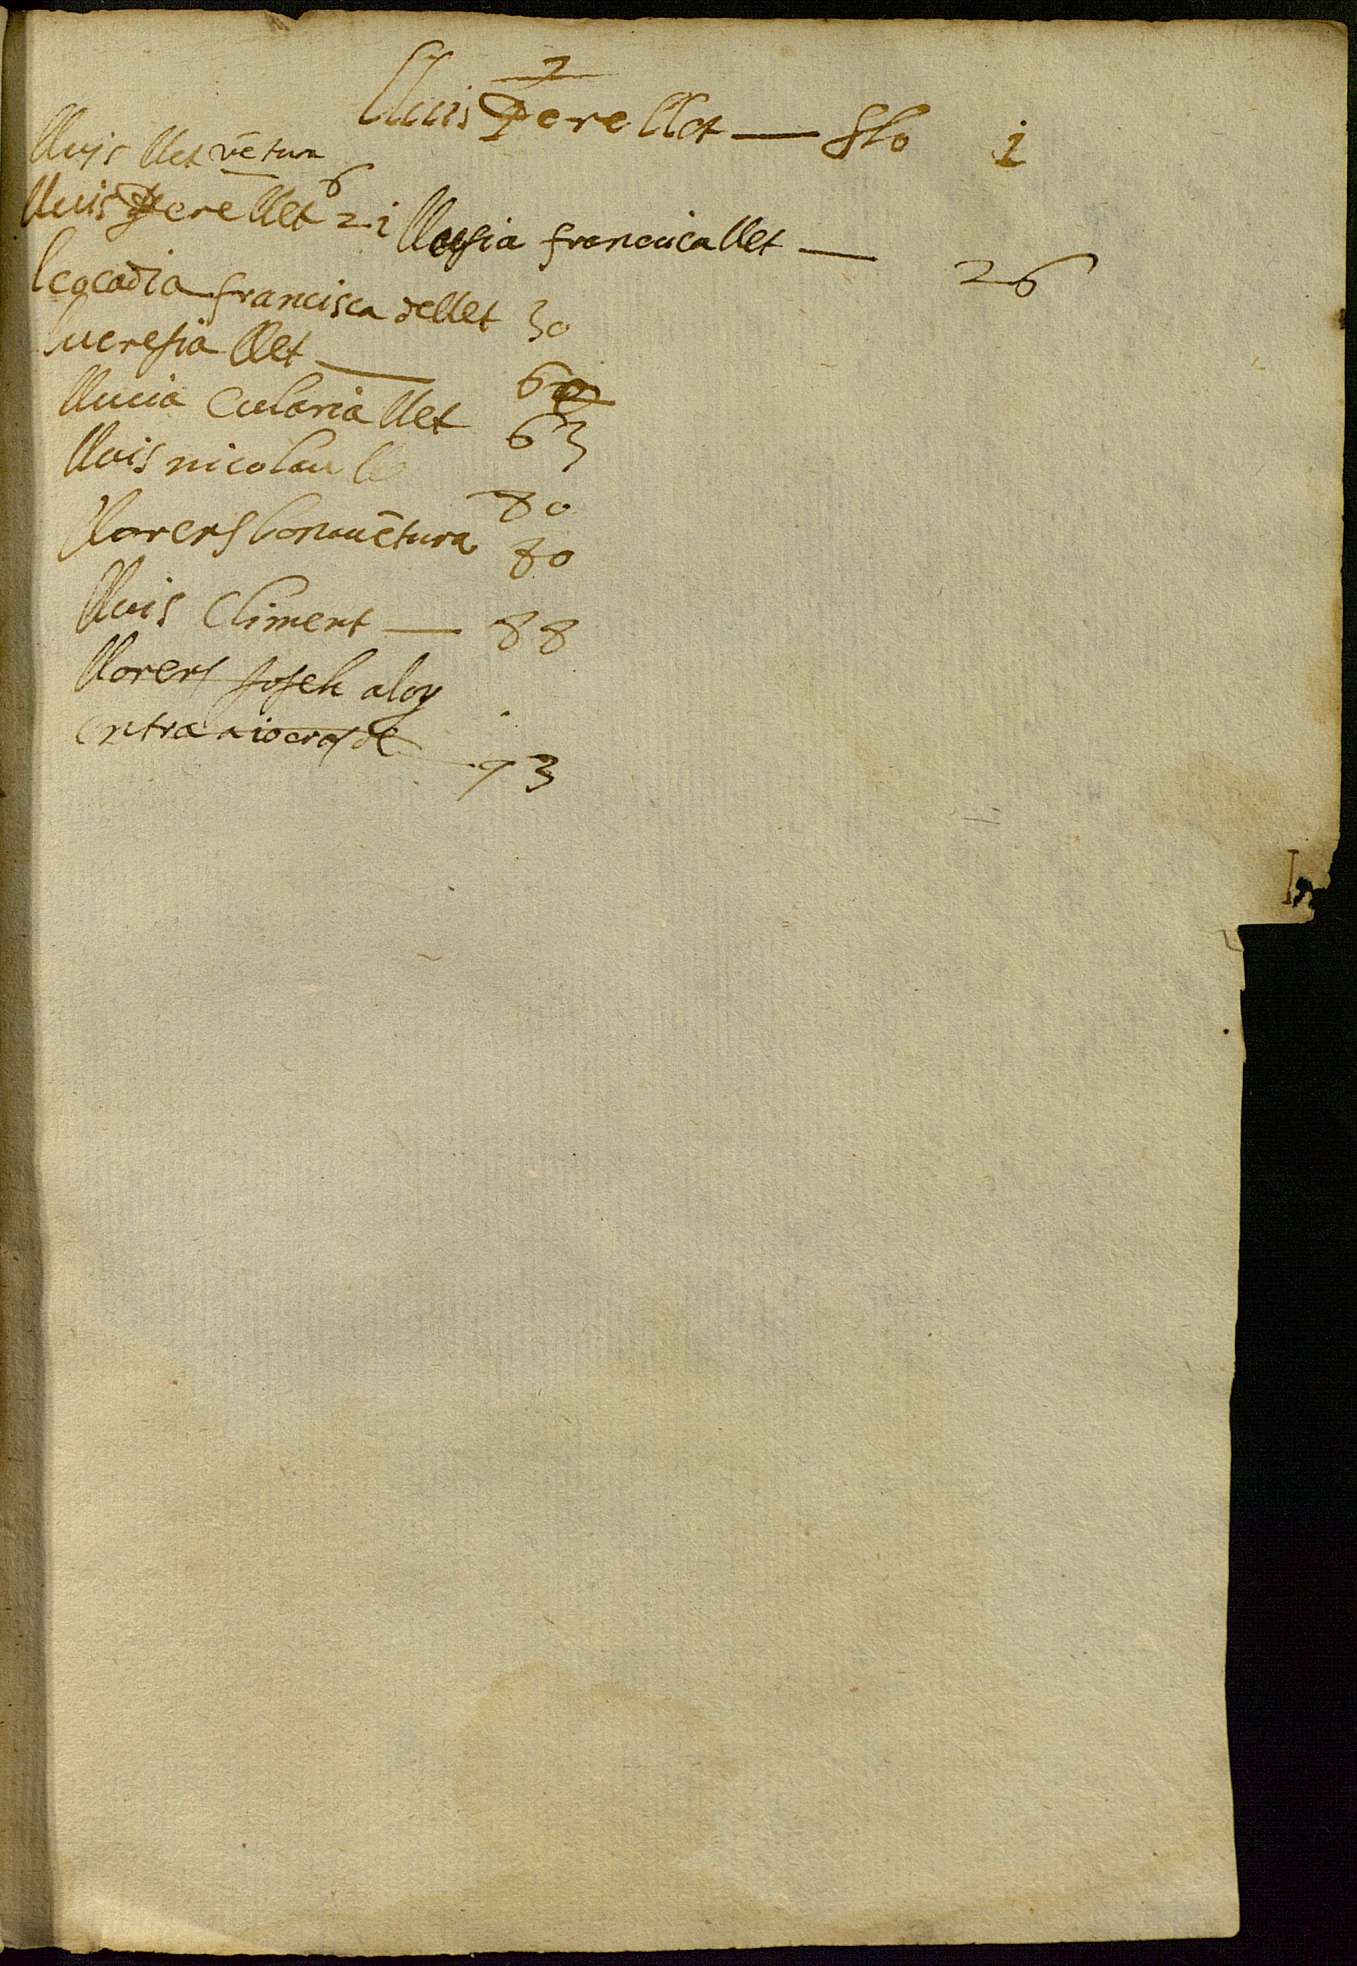 Lluis Pere llet — flo 1
lluis llet vētura 6
lluis Pere llet 21 llusia francisca llet — 26
leocadia francisca dellet 30
lucresia llet — 60
llucia Eularia llet 63
lluis nicolau lle 80
llorens bonauētura 80
lluis Climent — 88
llorens Joseh aloy
entra
93